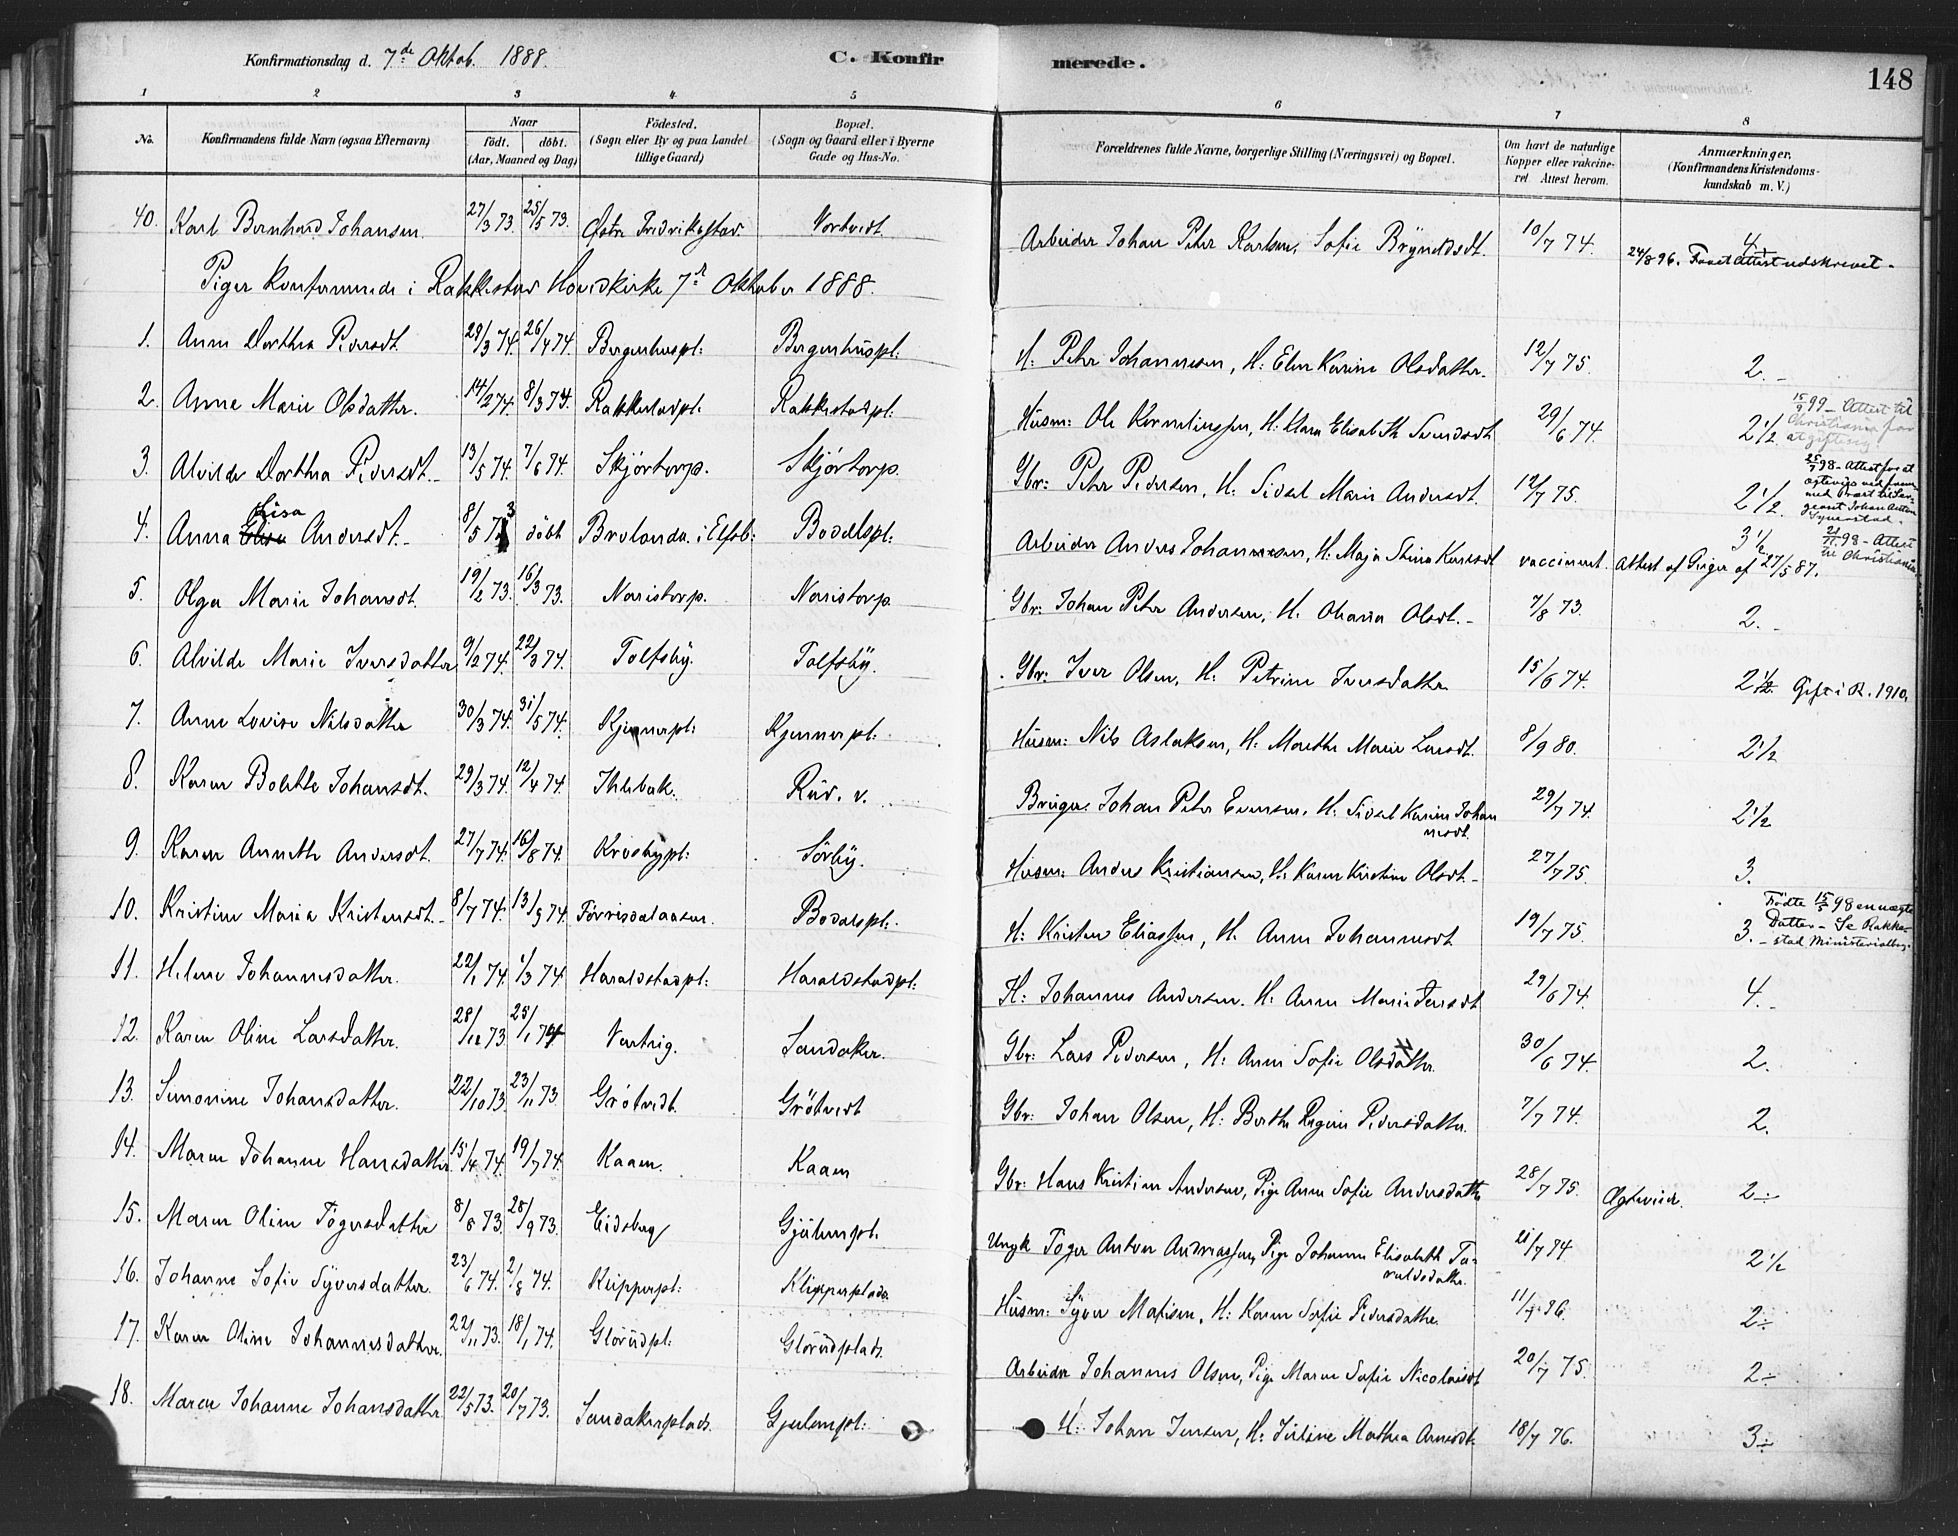 Konfirmationsdag d. 7de Oktob. 1888. C. Konfirmerede. 148
1 2 3 4 5 6 7 8
No. Konfirmandens fulde Navn (ogsaa Efternavn) Naar födt. döbt. (Aar, Maaned og Dag) Födested. (Sogn eller By og paa Landet tillige Gaard) Bopæl. (Sogn og Gaard eller i Byerne Gade og Hus-No. Forældrenes fulde Navne, borgerlige Stilling (Næringsvei) og Bopæl. Om havt de naturlige Kopper eller vakcineret Attest herom. Anmærkninger. (Konfirmandens Kristendomskundskab m. V.)
40. Karl Bernhard Johansen 27/3 73. 25/5 73. Östre Fredrikstad Vortvedt Arbeider Johan Peter Karlsen, Sofie Bryneldsdt. 10/7 74. 4. 24/8 96. Faaet Attest udskrevet.
Piger konfirmerede i Rakkestad Hovedkirke 7de Oktober 1888.
1. Anne Dorthea Pedersdt. 29/3 74. 26/4 74. Bergerhuspl: Bergerhuspl: H: Peter Johannesen, H: Elen Karine Olsdatter. 12/7 75. 2.
2. Anne Marie Olsdatter. 14/2 74. 8/3 74. Rakkestadpl: Rakkestadpl: Husm: Ole Kornelinssen, H: Klara Elisabeth Svendsdt. 29/6 74. 2 1/2 15/9 99 - Attest til Christiania for at giftesig
3. Alvilde Dorthea Pedersdt. 13/5 74. 7/6 74. Skjörtorp. Skjörtorp. Gbr: Peter Pedersen, H: Sidsel Marie Andersdt. 12/7 75. 2 1/2. 25/7 98 - Attest for at Johan Anton
4. Anna Lisa Andersdt. 8/5 73 döbt Brolanda i Elfsb: Bodalspl: Arbeider Anders Johannessen, H: Maja Stina Karlsdt. vaccineret. Attest af Giger af 27/5 87. 3 1/2 98 - Attest til Christiania
5. Olga Marie Johansdt. 19/2 73. 16/3 73. Naristorp. Naristorp. Gbr: Johan Peter Andersen, H. Olava Olsdt. 7/8 73. 2.
6. Alvilde Marie Iversdatter 9/2 74. 22/3 74. Tolfsby. Tolfsby. Gbr: Iver Olsen, H: Petrine Iversdatter 15/6 74. 2 1/2. Gift i R. 1910.
7. Anne Lovise Nilsdatter 30/3 74. 31/5 74. Kjennerpl: Kjennerpl: Husm: Nils Aslaksen, H: Marthe Marie Larsdt. 8/9 80. 2 1/2
8. Karen Bolette Johansdt. 29/3 74. 12/4 74. Ihlebæk. Rud. v. Bruger Johan Peter Evensen, H. Sidsel Karine Johannesdt. 29/7 74. 2 1/2
9. Karen Annette Andersdt. 27/7 74. 16/8 74. Krosbypl: Sörby. Husm: Anders Kristiansen, H: Karen Kirstine Olsdt. 27/7 75. 3.
10. Kristine Maria Kristensdt. 8/7 74. 13/9 74.Förrisdalaasen. Bodalspl: H: Kristen Eliassen, H. Anne Johannesdt 19/7 75. 3. Födte 15/5 98 en uægte Datter - Se Rakkestad Ministerialbog.
11. Helene Johannesdatter. 22/1 74. 1/3 74. Haraldstadpl: Haraldstadpl: H: Johannes Andersen. H: Anne Marie Jensdt. 29/6 74. 4.
12. Karen Oline Larsdatter. 28/12 73. 25/1 74 Vestvig. Sandaker. Gbr: Lars Pedersen, H: Anne Sofie Olsdatter. 30/6 74. 2.
13. Simonine Johansdatter. 22/10 73. 23/11 73. Grötvedt. Grötvedt Gbr: Johan Olsen, H: Berthe Regine Pedersdatter. 7/7 74. 2.
14. Maren Johanne Hansdatter 15/4 74. 19/7 74. Kaaen. Kaaen Gbr: Hans Kristian Andersen, Pige Anne Sofie Andersdatter 28/7 75. Ægteviet. 2÷
15. Maren Oline Tögersdatter 8/8 73. 28/9 73. Eidsberg Gjulempl. Ungk Töger Anton Andreassen, Pige Johanne Elisabeth Taraldsdatter. 21/7 74. 2 1/2
16. Johanne Sofie Syversdatter. 23/6 74. 2/8 74. Klipperpl: Klipperplads. Husm: Syver Matisen, H: Karen Sofie Pedersdatter. 11/7 96. 2÷
17. Karen Oline Johannesdatter. 22/11 73. 18/1 74. Glörudpl: Glörudplads. Arbeider Johannes Olsen, Pige Maren Sofie Nicolaisdt. 20/7 75. 2÷
18. Maren Johanne Johansdatter. 22/5 73. 20/7 73. Sandakerplads. Gjulempl: H: Johan Jensen, H: Juline Mathea Arnesdt. 18/7 76. 3÷